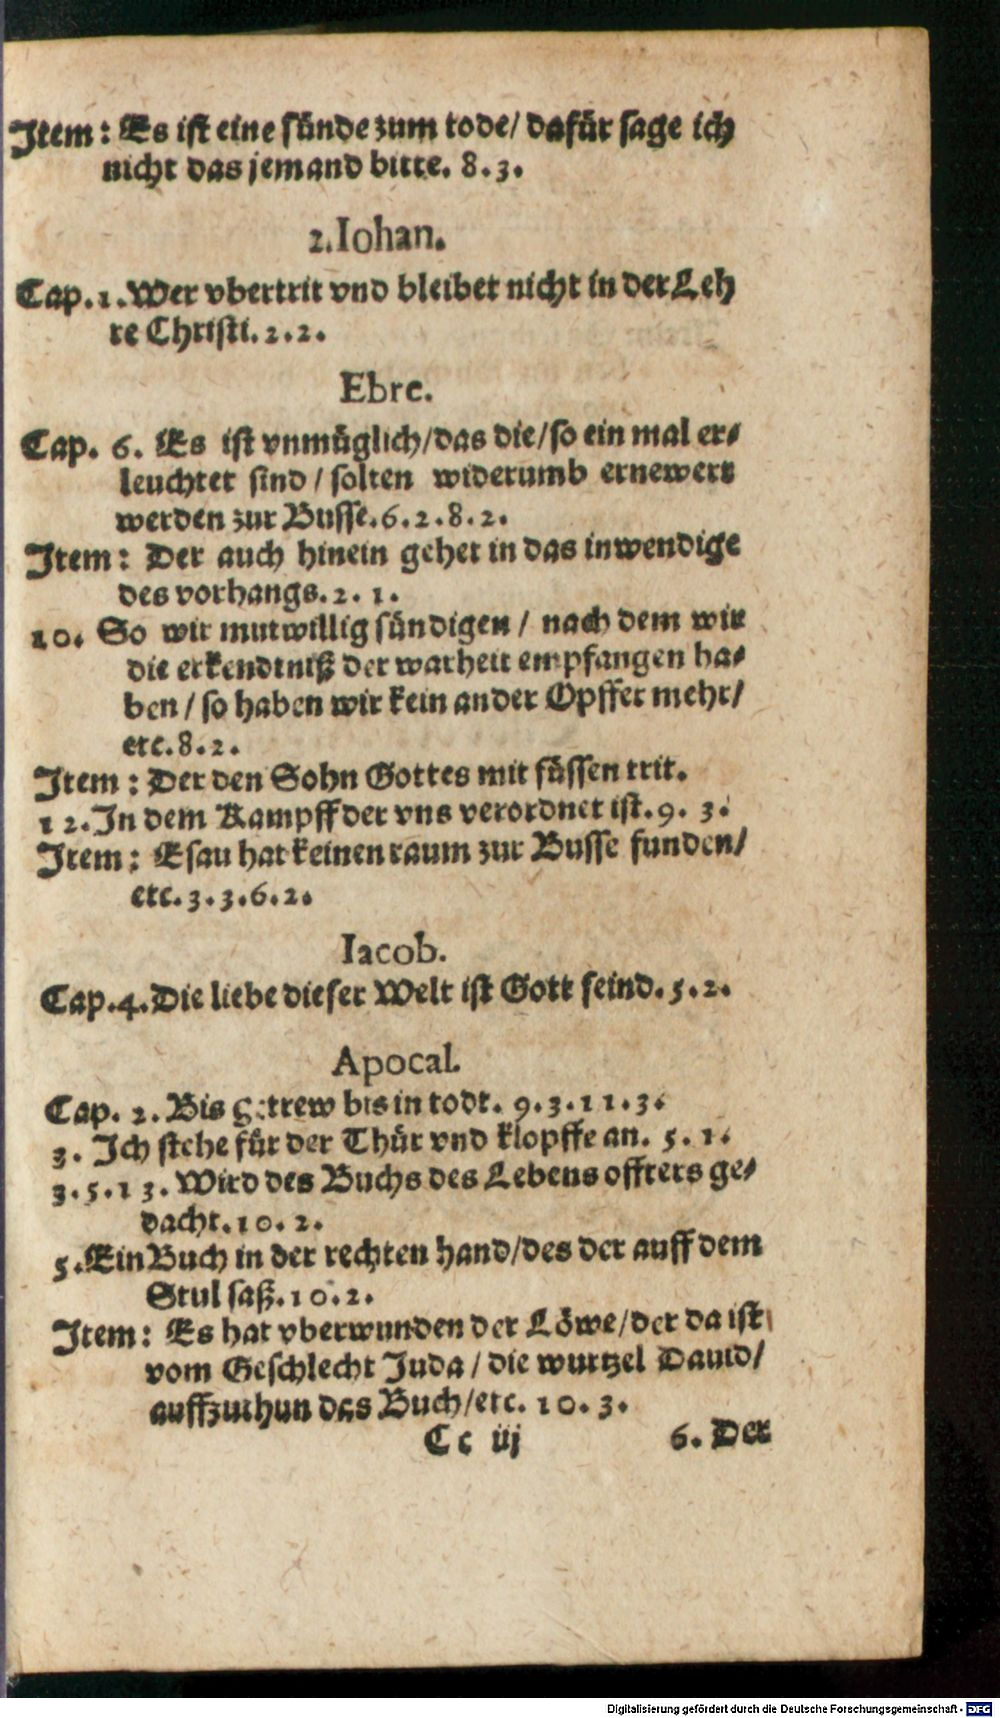 Item: Es ist eine sünde zum tode/ dafür sage ich
nicht das jemand bitte. 8.3.
2.Iohan.
Cap.1.Wer vbertrit vnd bleibet nicht in der Leh
re Christi.2.2.
Ebre.
Cap. 6. Es ist vnmüglich/das die/so ein mal er-
leuchtet sind / solten widerumb ernewert
werden zur Busse.6.2.8.2.
Item: Der auch hinein gehet in das inwendige
des vorhangs.2.1.
10. So wir mutwillig sündigen / nach dem wir
die erkendtniß der warheit empfangen ha-
ben / so haben wir kein ander Opffer mehr/
etc.8.2.
Item: Der den Sohn Gottes mit füssen trit.
12.In dem Kampff der vns verordnet ist.9.3.
Item: Esau hat keinen raum zur Busse funden/
etc.3.3.6.2.
Iacob.
Cap.4.Die liebe dieser Welt ist Gott feind.5.2.
Apocal.
Cap. 2. Bis getrew bis in todt. 9.3.11.3.
3. Ich stehe für der Thür vnd klopffe an. 5.1.
3.5.13. Wird des Buchs des Lebens offters ge-
dacht.10.2.
5.Ein Buch in der rechten hand/des der auff dem
Stul saß.10.2.
Item: Es hat vberwunden der Löwe/der da ist
vom Geschlecht Juda / die wurtzel Dauid/
auffzuthun das Buch/etc. 10.3.
Cc iij 6. Der
Digitalisierung gefördert durch die Deutsche Forschungsgemeinschaft - DFG